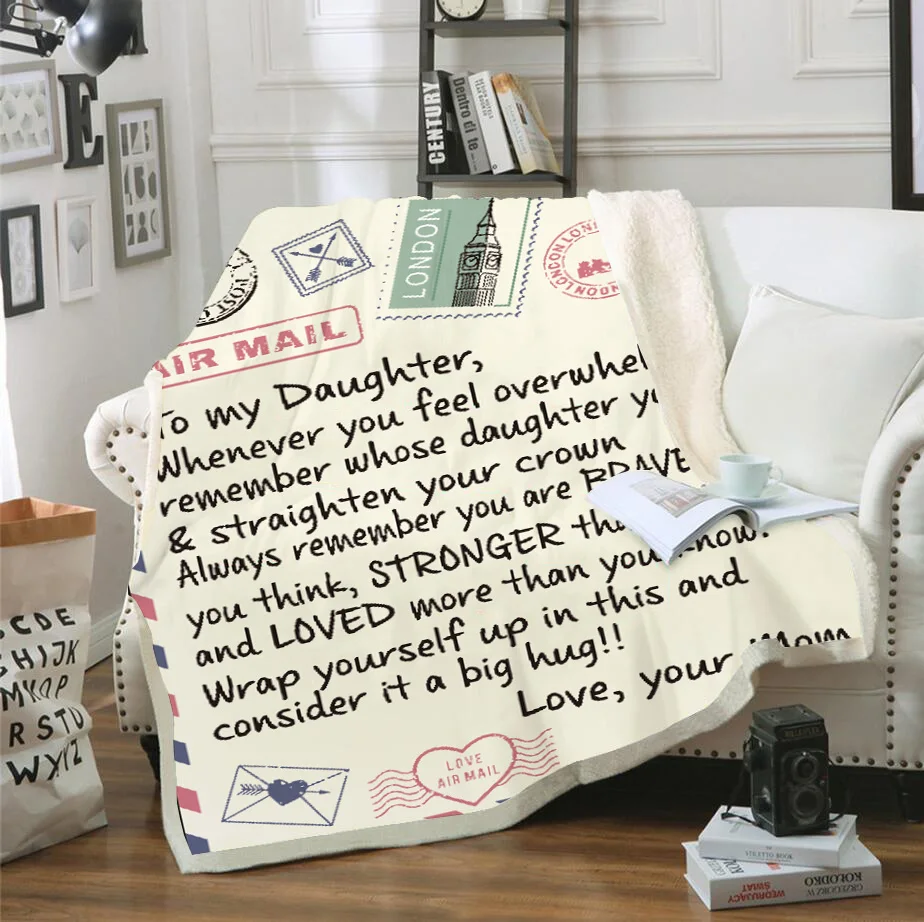 CENTURY
Dentro di te
LONDON
LONDON LONDON
AIR MAIL
To my Daughter,
Whenever you feel overwhel
remember whose daughter yo
& straighten your crown
Always remember you are BRAVE
you think, STRONGER tha
and LOVED more than you know.
Wrap yourself up in this and
consider it a big hug!!
Love, your Mom
LOVE
AIR MAIL
CDE
GHIJK
MNOP
RSTU
WXYZ
E
STILETTO BOOK
GRZEGORZ W
KOŁODKO
WĘDRUJĄCY
ŚWIAT